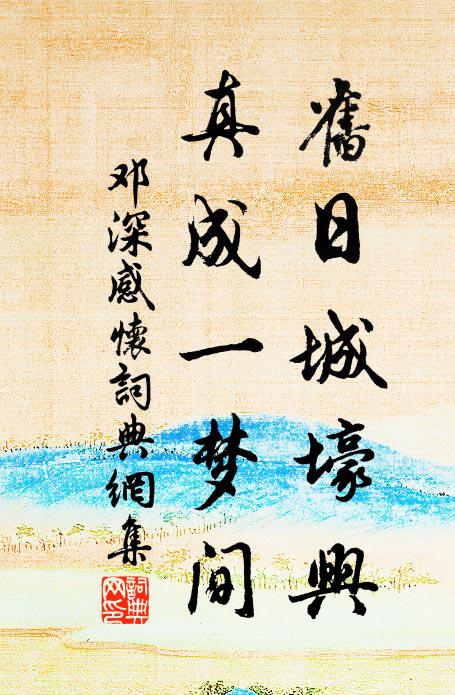 舊日城壕興
真成一梦间
邓深感懷詞典網集
詞典网印